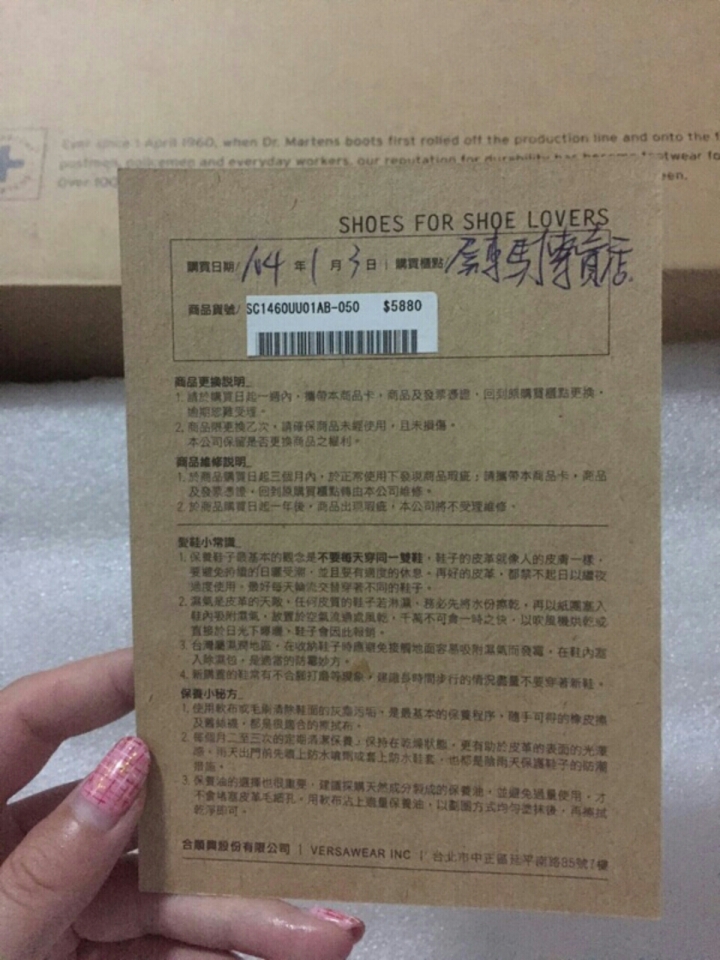 Ever since 1 April 1960, when Dr. Martens boots first rolled off the production line and onto the
postmen, policemen and everyday workers, our reputation for durability has become footwear fo
Over 100
een.
SHOES FOR SHOE LOVERS
購買日期/104年1月3日 | 購買櫃點/屏東馬傳賣店
商品貨號/SC1460UU01AB-050 $5880
商品更換說明_
1. 請於購買日起一週內,攜帶本商品卡,商品及發票憑證,回到原購買櫃點更換,
逾期恕難受理。
2. 商品限更換乙次,請確保商品未經使用,且未損傷。
本公司保留是否更換商品之權利。
商品維修說明_
1. 於商品購買日起三個月內,於正常使用下發現商品瑕疵;請攜帶本商品卡,商品
及發票憑證,回到原購買櫃點轉由本公司維修。
2. 於商品購買日起一年後,商品出現瑕疵,本公司將不受理維修。
愛鞋小常識_
1. 保養鞋子最基本的觀念是不要每天穿同一雙鞋,鞋子的皮革就像人的皮膚一樣,
要避免持續的日曬受潮,並且要有適度的休息。再好的皮革,都禁不起日以繼夜
過度使用。最好每天輪流交替穿著不同的鞋子。
2. 濕氣是皮革的天敵,任何皮質的鞋子若淋濕,務必先將水份擦乾,再以紙團塞入
鞋內吸附濕氣,放置於空氣流通處風乾,千萬不可貪一時之快,以吹風機烘乾或
直接於日光下曝曬,鞋子會因此報銷。
3. 台灣屬濕潤地區,在收納鞋子時應避免接觸地面容易吸附濕氣而發霉,在鞋內塞
入除濕包,是適當的防霉妙方。
4. 新購置的鞋常有不合腳打磨等現象,建議長時間步行的情況盡量不要穿著新鞋。
保養小秘方_
1. 使用軟布或毛刷清除鞋面的灰塵污垢,是最基本的保養程序,隨手可得的橡皮擦
及舊絲襪,都是很適合的擦拭布。
2. 每個月二至三次的定期清潔保養,保持在乾燥狀態,更有助於皮革的表面的光澤
感。雨天出門前先噴上防水噴劑或套上防水鞋套,也都是陰雨天保護鞋子的防潮
措施。
3. 保養油的選擇也很重要,建議採購天然成分製成的保養油,並避免過量使用,才
不會堵塞皮革毛細孔。用軟布沾上適量保養油,以劃圈方式均勻塗抹後,再擦拭
乾淨即可。
合順興股份有限公司 | VERSAWEAR INC | 台北市中正區延平南路85號7樓